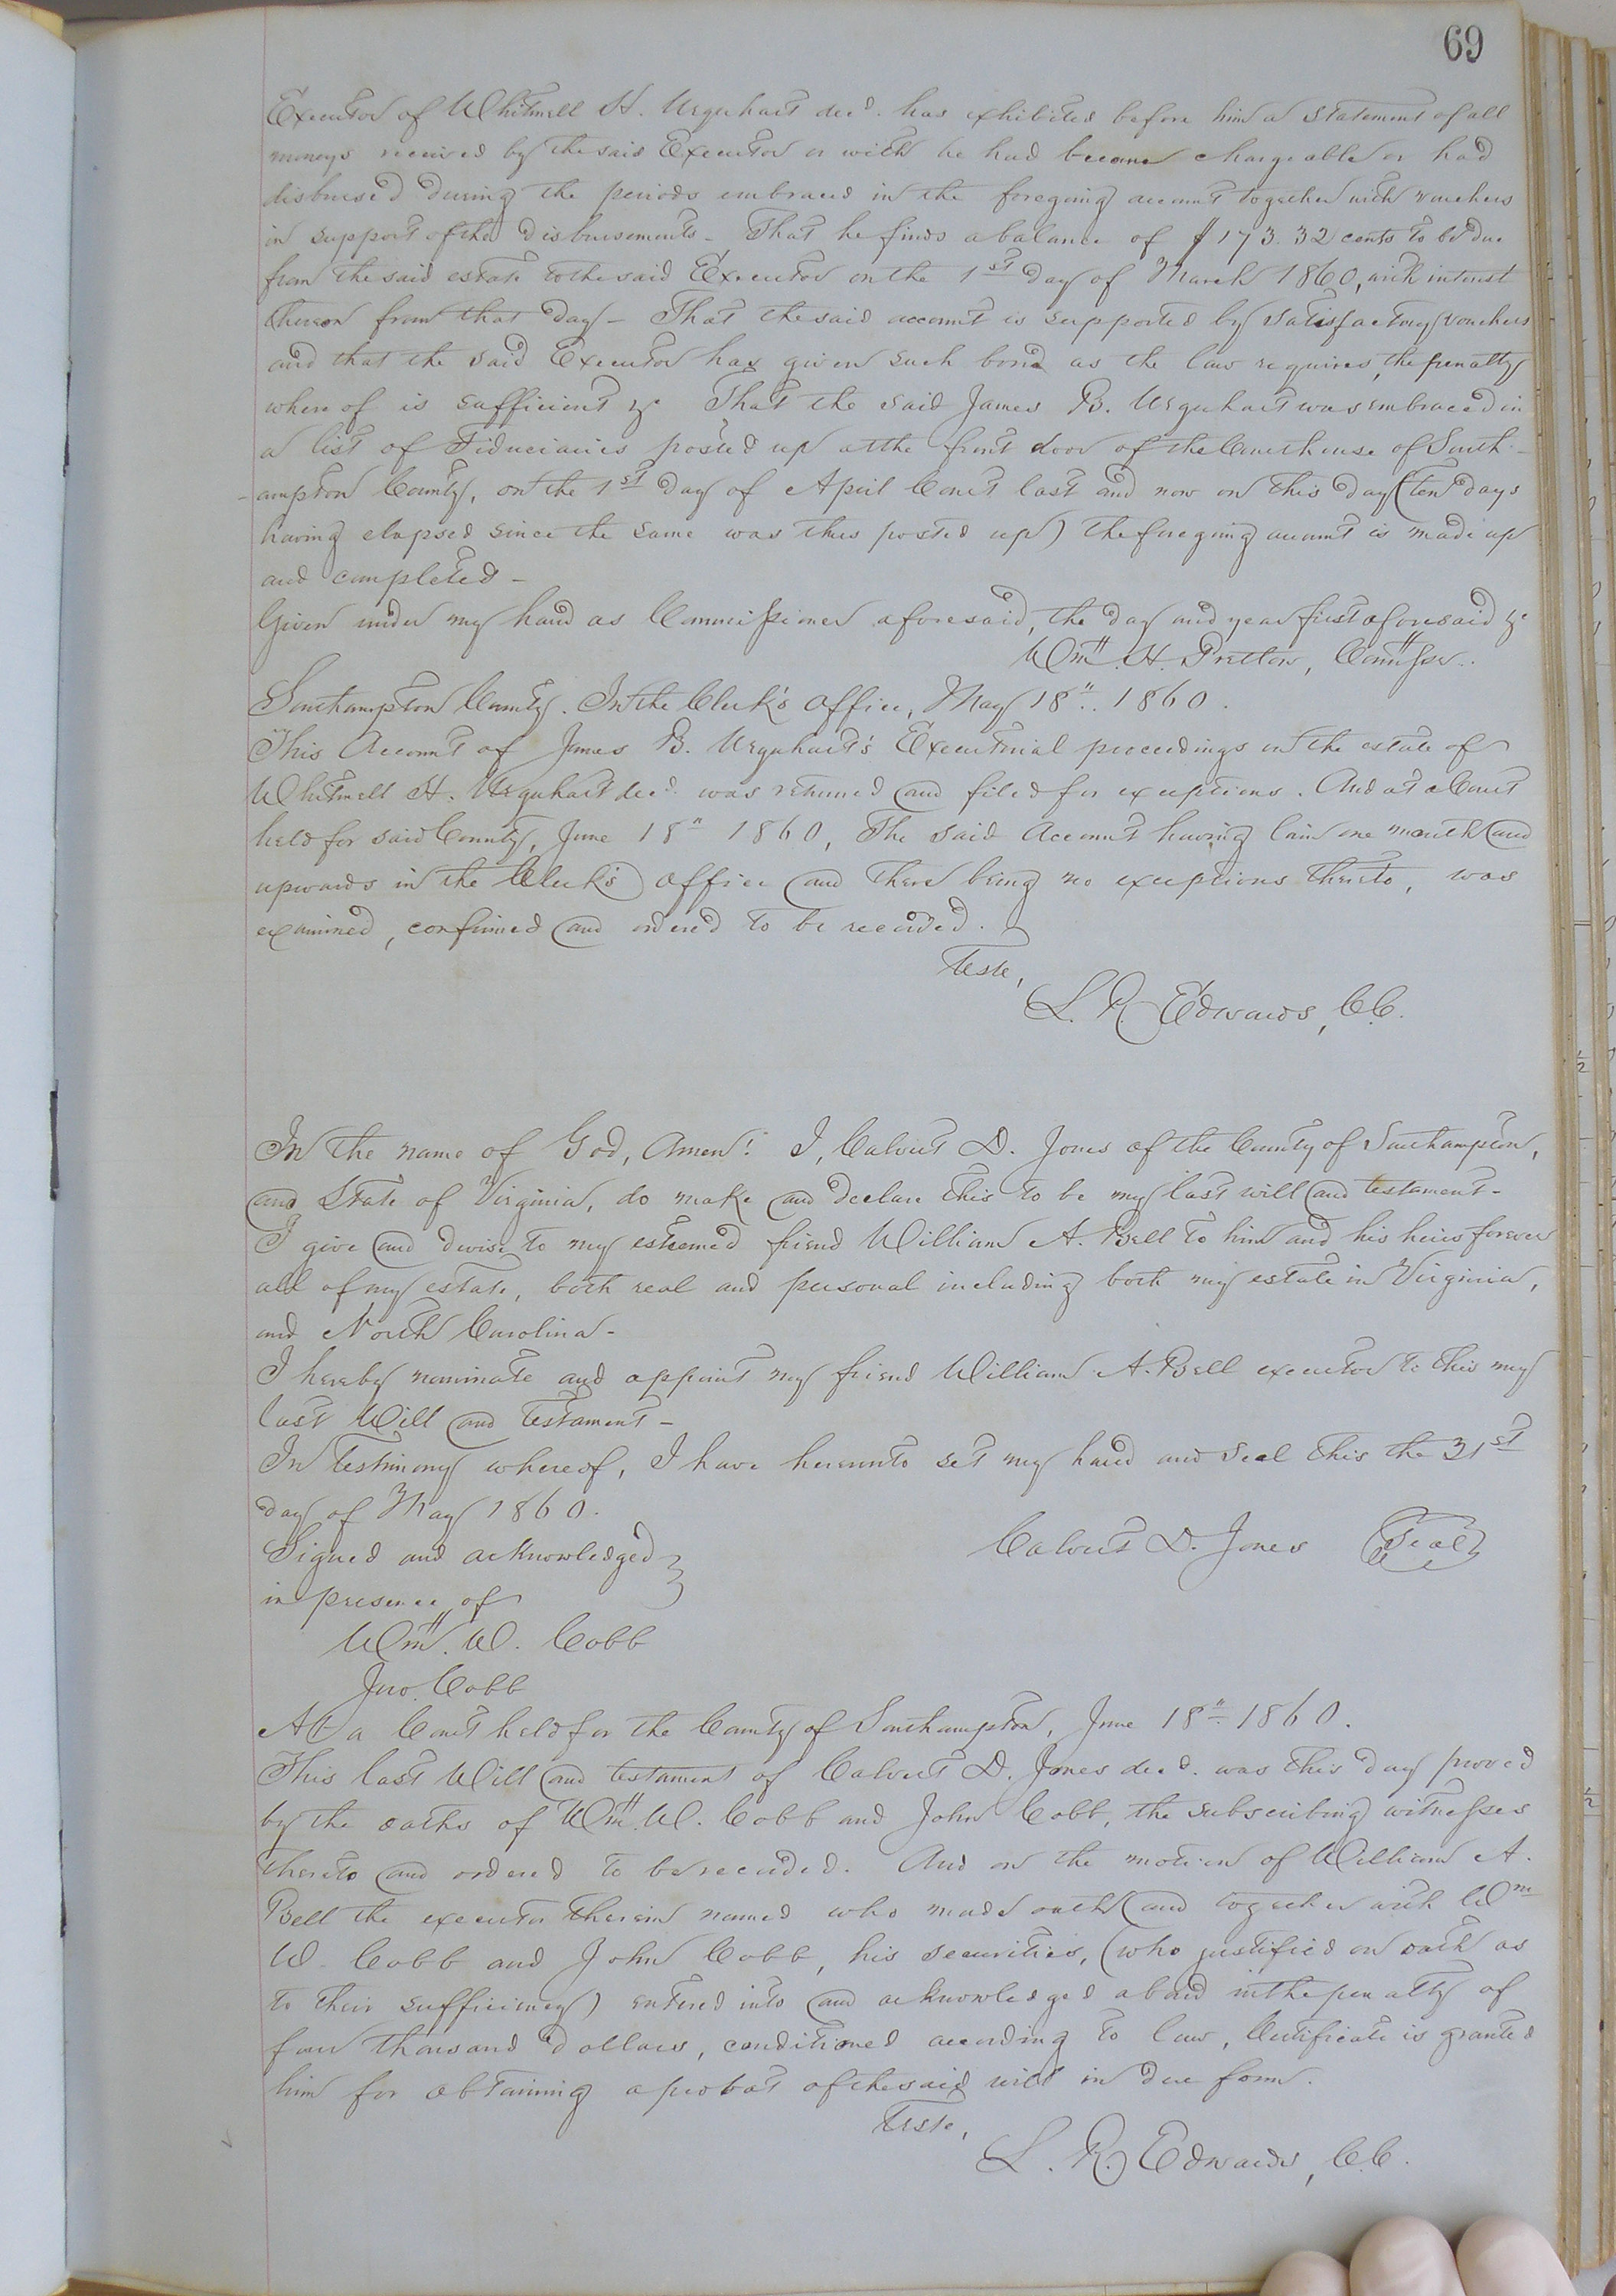 69
Executor of Whitmell H. Urquhart decd. has exhibited before him a statement of all
moneys received by the said Executor or with he had became chargeable or had
disbursed during the periods embraced in the foregoing account together with vouchers
in support of the disbursements - That he finds a balance of $173.32 cents to be due
from the said estate to the said Executor on the 1st day of March 1860, with interest
thereon from that day - That the said account is supported by satisfactory vouchers
and that the said Executor has given such bond as the law requires, the penalty
whereof is sufficient &c That the said James B. Urquhart was embraced in
a list of Fiduciaries posted up at the front door of the Courthouse of South-
-ampton County, on the 1st day of April Court last and now on this day (ten days
having elapsed since the same was thus posted up) the foregoing account is made up
and completed -
Given under my hand as Commissioner aforesaid, the day and year first aforesaid &c
Wm. H. Pretlow, Commssr.
Southampton County. In the Clerk's Office, May 18". 1860.
This Account of James B. Urquhart's Executorial proceedings on the estate of
Whitmell H. Urquhart decd. was returned and filed for exceptions. And at a Court
held for said County, June 18" 1860, The said Account having lain one month and
upwards in the Clerk's office and there being no exceptions thereto, was
examined, confirmed and ordered to be recorded.
Teste,
L. R. Edwards, C.C.
In the name of God, Amen! I, Calvert D. Jones of the County of Southampton,
and State of Virginia, do make and declare this to be my last will and testament -
I give and devise to my esteemed friend William A. Bell to him and his heirs forever
all of my estate, both real and personal including both my estate in Virginia,
and North Carolina -
I hereby nominate and appoint my friend William A. Bell executor to this my
last Will and Testament -
In testimony whereof, I have hereunto set my hand and seal this the 31st
day of May 1860.
Calvert D. Jones (Seal)
Signed and acknowledged }
in presence of
Wm. W. Cobb
Jno. Cobb
At a Court held for the County of Southampton, June 18". 1860.
This last Will and testament of Calvert D. Jones decd. was this day proved
by the oaths of Wm. W. Cobb and John Cobb, the subscribing witnesses
thereto and ordered to be recorded. And on the motion of William A.
Bell the executor therein named who made oath and together with Wm
W. Cobb and John Cobb, his securities, (who justified on oath as
to their sufficiency) entered into and acknowledged a bond in the penalty of
four thousand dollars, conditioned according to law, Certificate is granted
him for obtaining a probat of the said will in due form.
Teste,
L. R. Edwards, C.C.